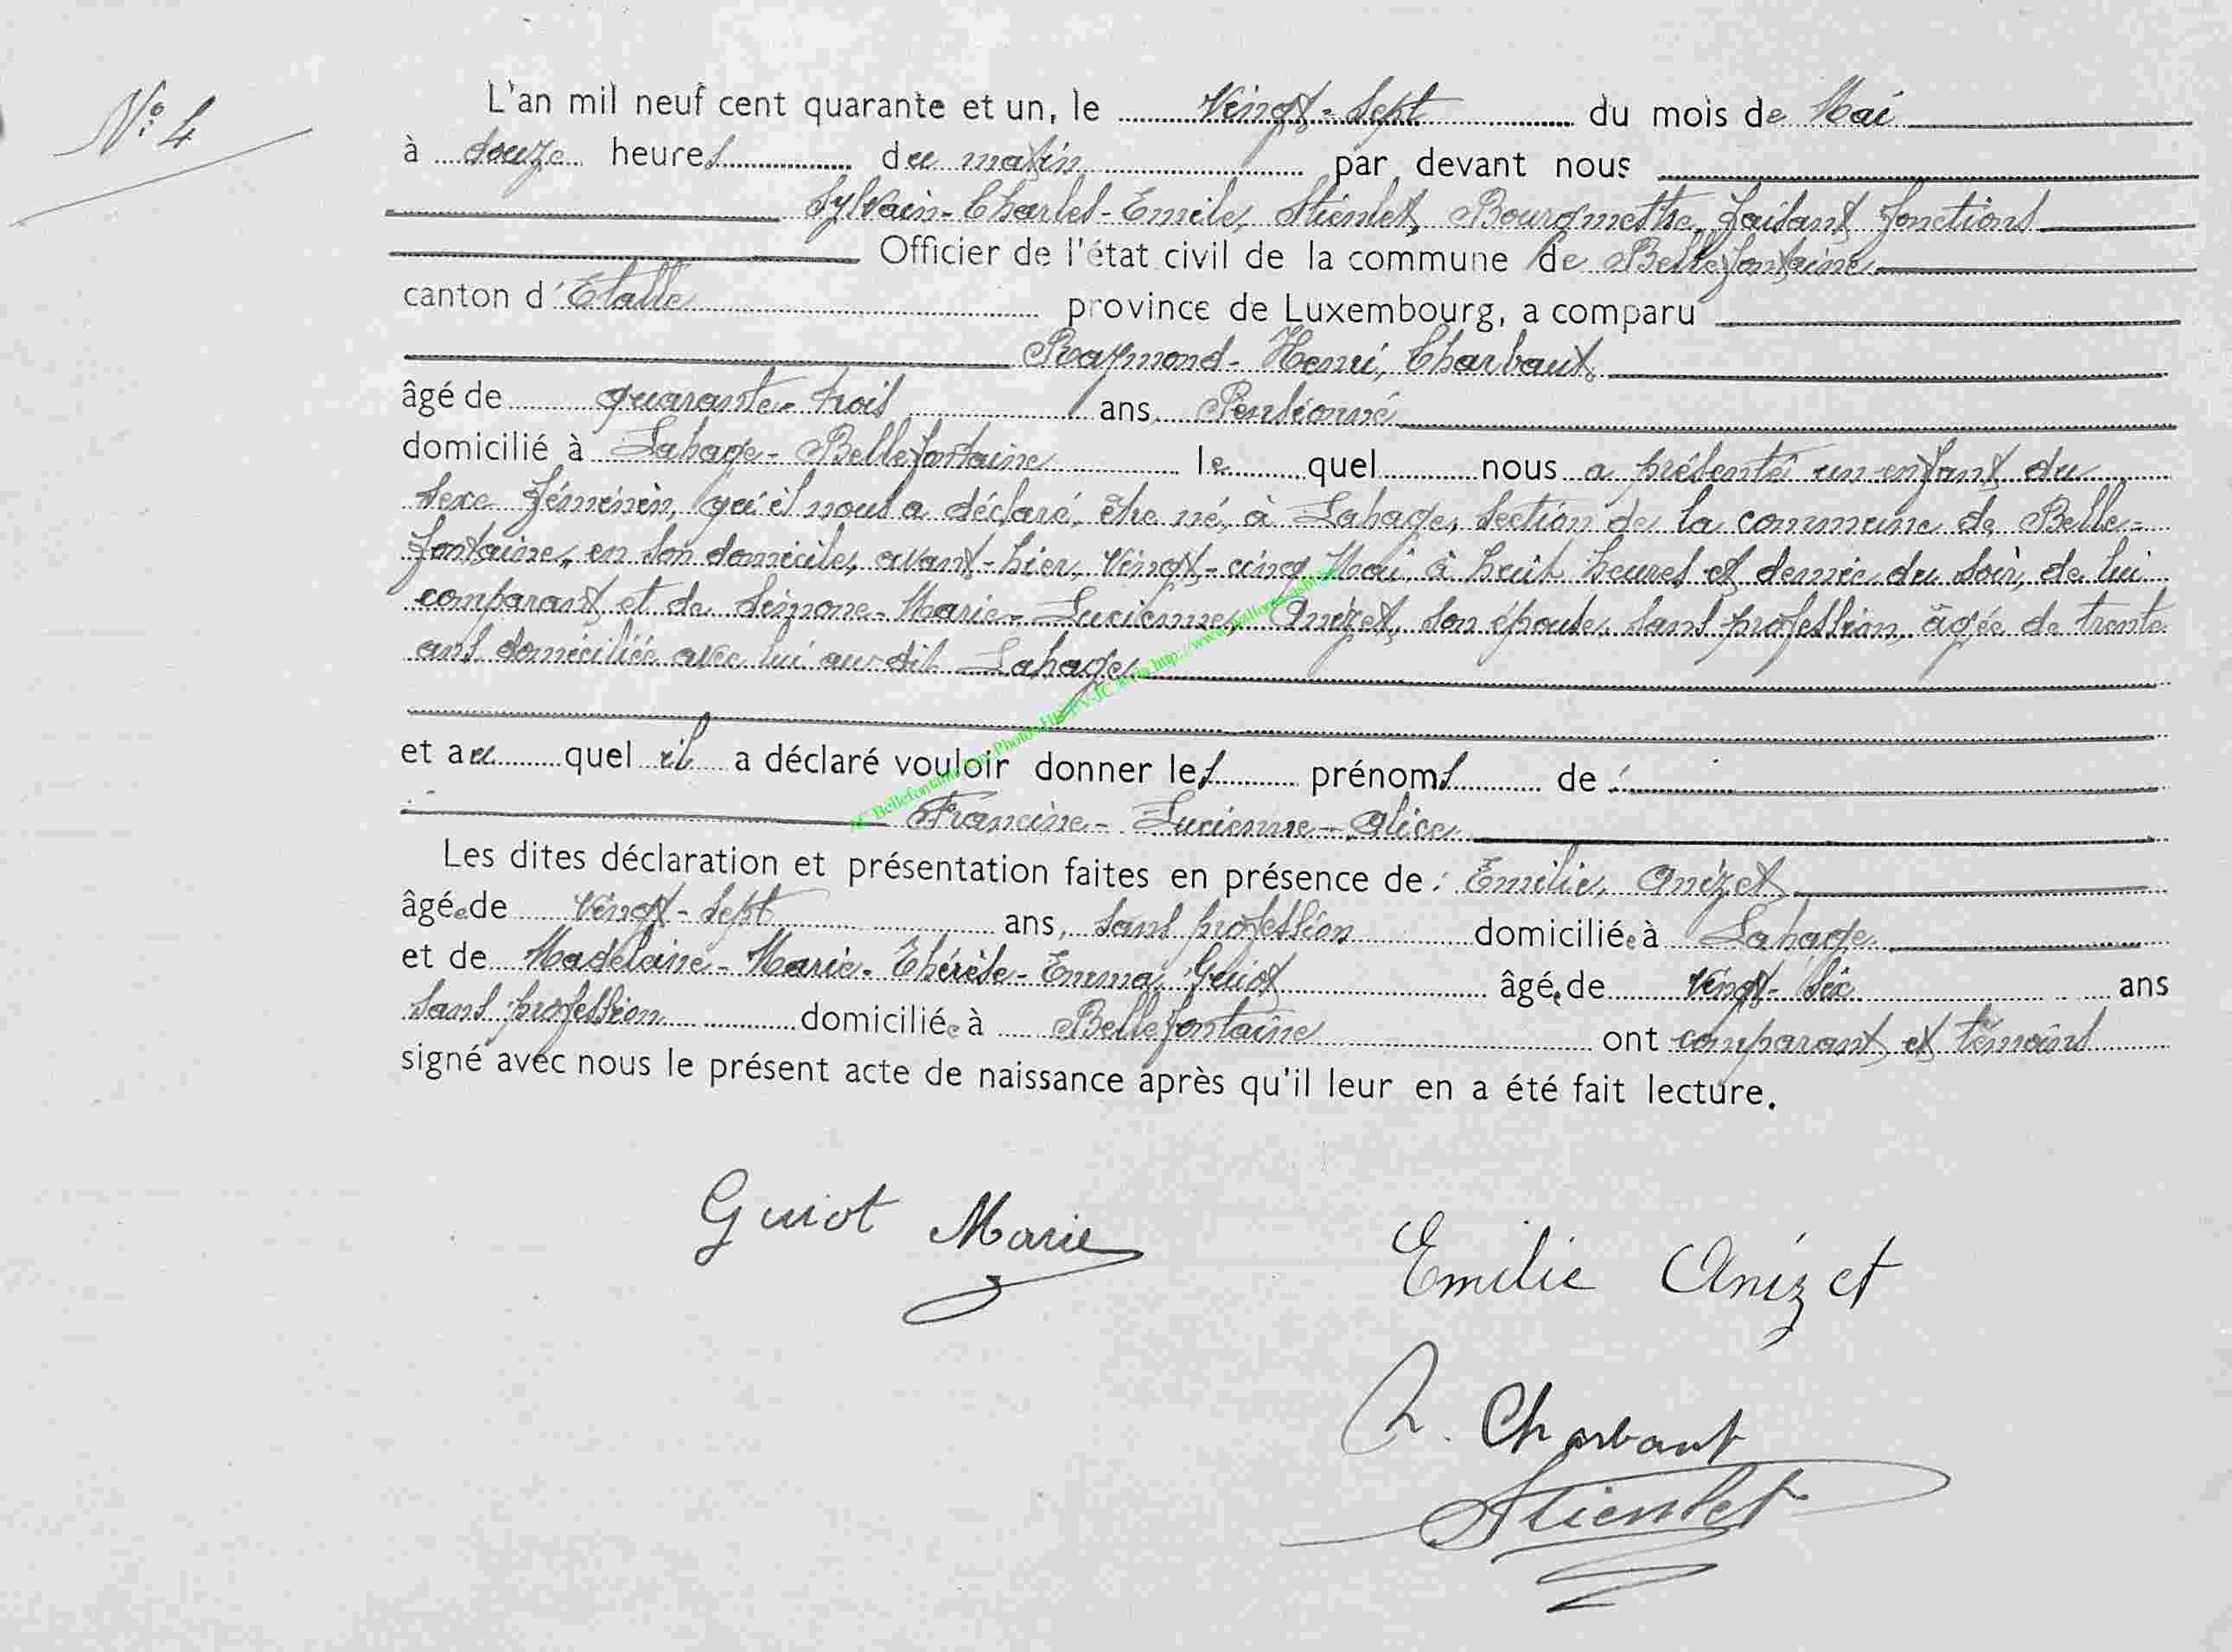 N° 4
L'an mil neuf cent quarante et un, le vingt-sept du mois de Mai
à douze heures du matin par devant nous
Sylvain-Charles-Emile, Stienlet, Bourgmestre, faisant fonctions
Officier de l'état civil de la commune de Bellefontaine
canton d'Etalle province de Luxembourg, a comparu
Raymond-Henri, Charbaut
âgé de quarante-trois ans, Pensionné
domicilié à Lahage-Bellefontaine lequel nous a présenté un enfant du
sexe féminin, qu'il nous a déclaré être né, à Lahage, section de la commune de Belle=
fontaine, en son domicile, avant-hier, vingt-cinq Mai, à huit heures et demie du soir, de lui
comparant et de Simone-Marie-Lucienne, Anizet, son épouse, sans profession, âgée de trente
ans domiciliée avec lui au dit Lahage
et auquel il a déclaré vouloir donner les prénoms de :
Francine-Lucienne-Alice
Les dites déclaration et présentation faites en présence de : Emilie, Anizet
âgée de vingt-sept ans, sans profession domiciliée à Lahage
et de Madelaine-Marie-Thérèse-Emma, Guiot âgée de vingt-six ans
sans profession domiciliée à Bellefontaine ont comparant et témoins
signé avec nous le présent acte de naissance après qu'il leur en a été fait lecture.
Guiot Marie
Emilie Anizet
R. Charbaut
Stienlet